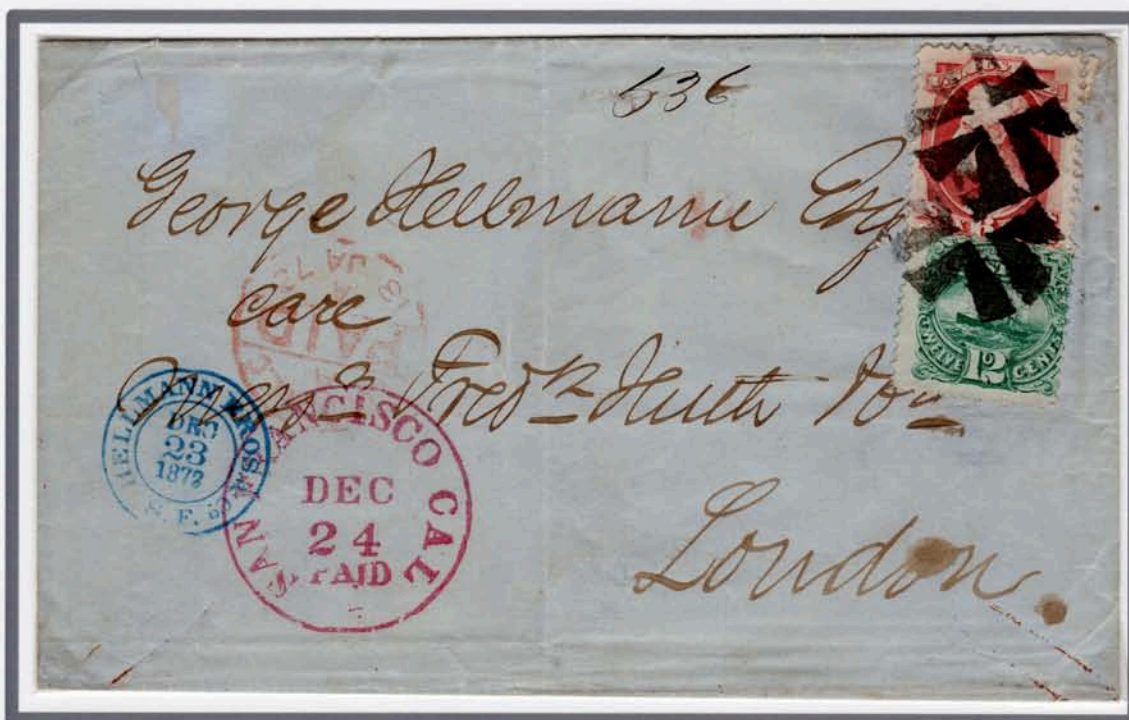 536
George Hellmann Esq
care
Mess Fredk Huth & Co
London.
HELLMANN BROS & Co
DEC
23
1872
S. F.
SAN FRANCISCO CAL
DEC
24
PAID
TWELVE 12 CENTS
PAID
JA